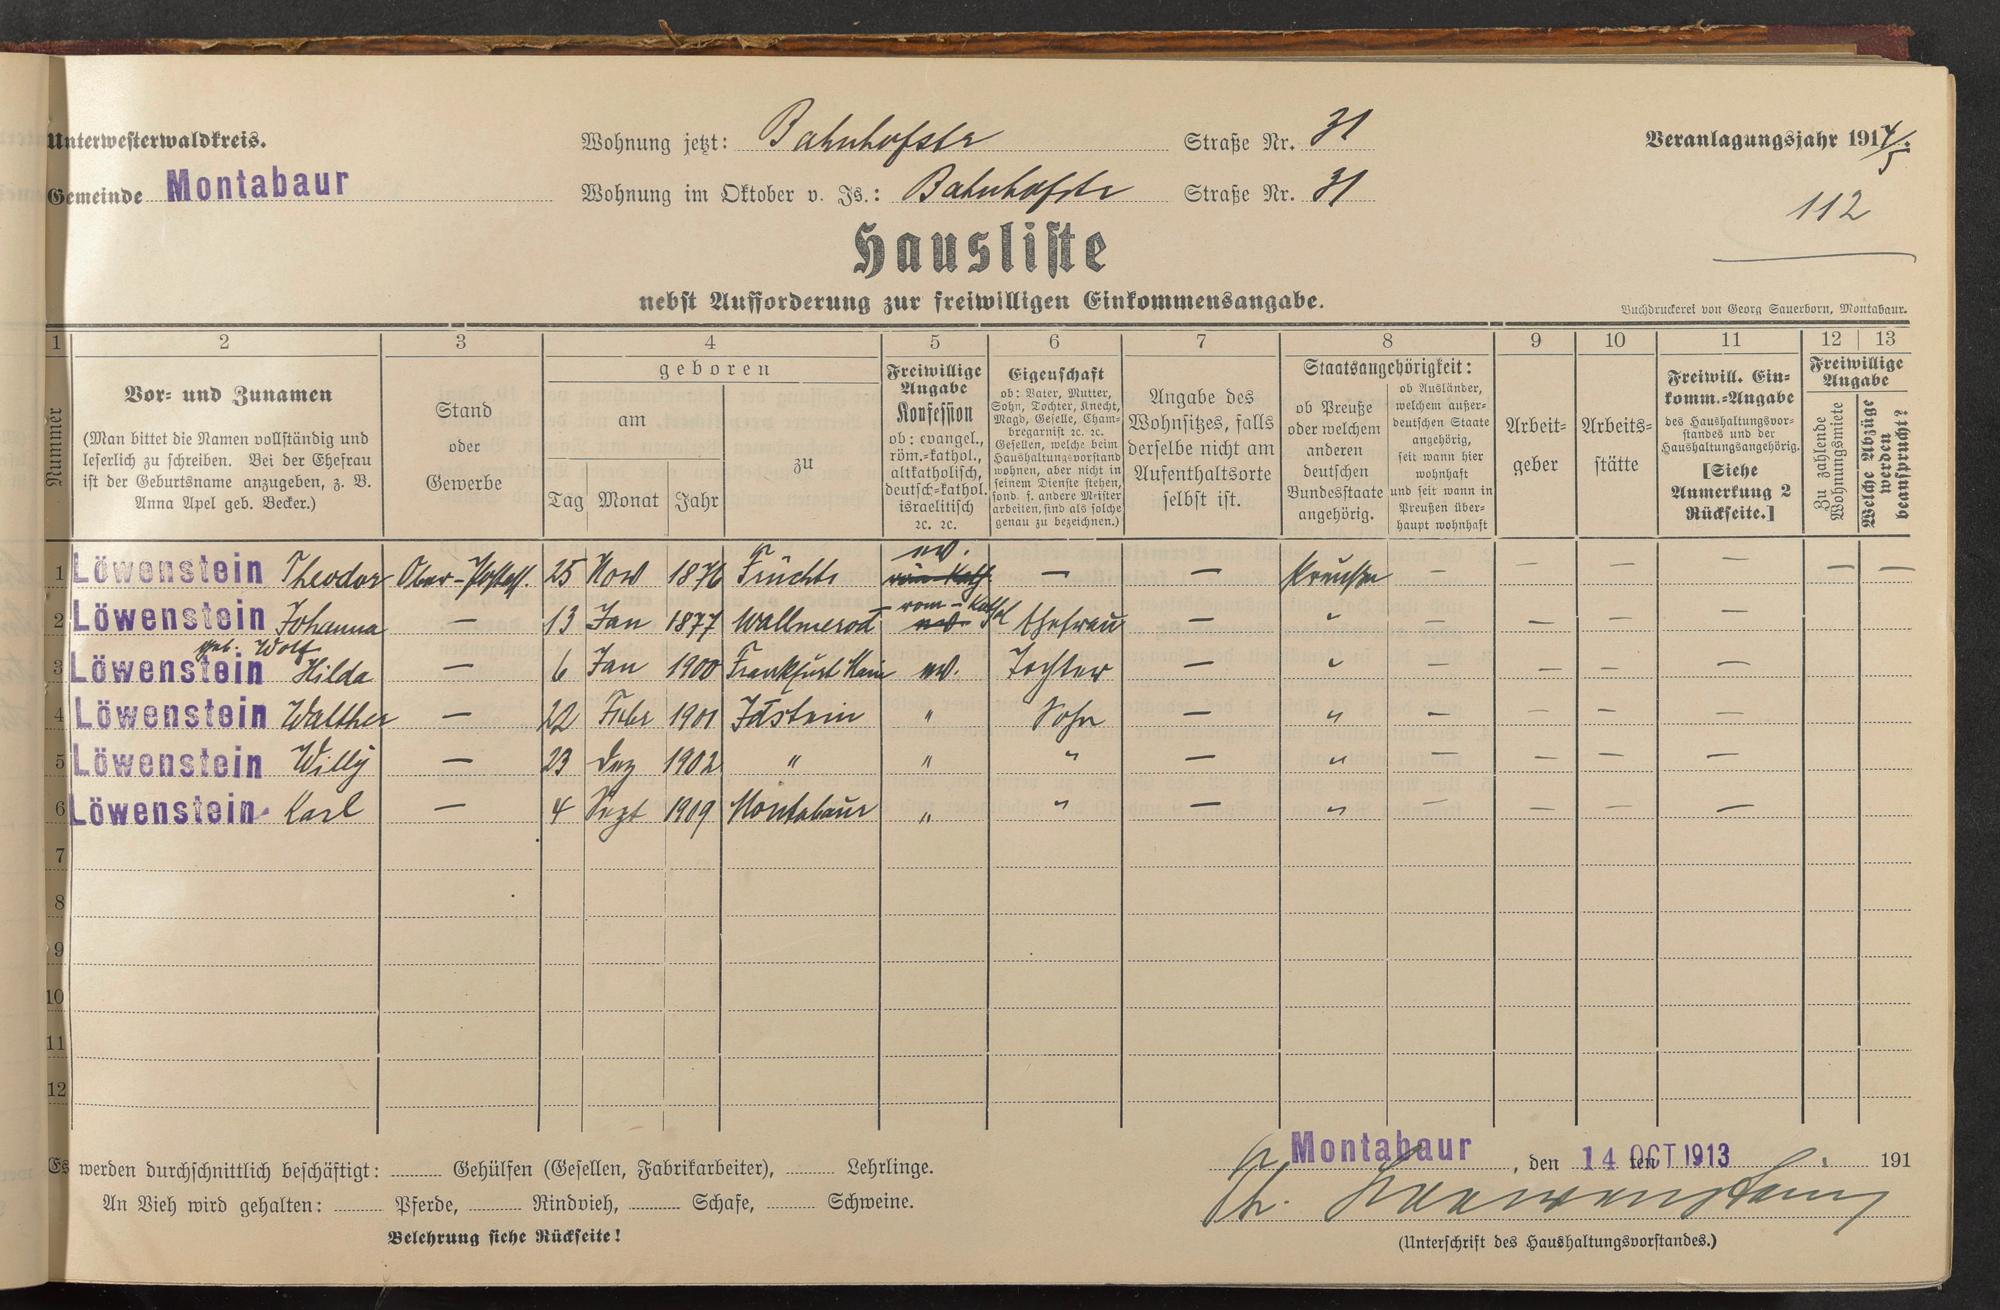 Unterwesterwaldkreis.
Gemeinde Montabaur
Wohnung jetzt: Bahnhofstr Straße Nr. 31
Wohnung im Oktober v. Js.: Bahnhofstr Straße Nr. 31
Veranlagungsjahr 1914/5
112
Hausliste
nebst Aufforderung zur freiwilligen Einkommensangabe.
Buchdruckerei von Georg Sauerborn, Montabaur.
1 2 3 4 5 6 7 8 9 10 11 12 13
Nummer
Vor- und Zunamen
(Man bittet die Namen vollständig und
leserlich zu schreiben. Bei der Ehefrau
ist der Geburtsname anzugeben, z. B.
Anna Apel geb. Becker.)
Stand
oder
Gewerbe
geboren
am
Tag Monat Jahr
zu
Freiwillige
Angabe
Konfession
ob: evangel.,
röm.-kathol.,
altkatholisch,
deutsch-kathol.
israelitisch
2c. 2c.
Eigenschaft
ob: Vater, Mutter,
Sohn, Tochter, Knecht,
Magd, Geselle, Cham-
bregarnist 2c. 2c.
Gesellen, welche beim
Haushaltungsvorstand
wohnen, aber nicht in
seinem Dienste stehen,
sond. f. andere Meister
arbeiten, sind als solche
genau zu bezeichnen.)
Angabe des
Wohnsitzes, falls
derselbe nicht am
Aufenthaltsorte
selbst ist.
Staatsangehörigkeit:
ob Preuße
oder welchem
anderen
deutschen
Bundesstaate
angehörig.
ob Ausländer,
welchem außer-
deutschen Staate
angehörig,
seit wann hier
wohnhaft
und seit wann in
Preußen über-
haupt wohnhaft
Arbeit-
geber
Arbeits-
stätte
Freiwill. Ein-
komm.-Angabe
des Haushaltungsvor-
standes und der
Haushaltungsangehörig.
[Siehe
Anmerkung 2
Rückseite.]
Freiwillige
Angabe
Zu zahlende
Wohnungsmiete
Welche Abzüge
werden
beansprucht?
1 Löwenstein Theodor Ober-Postass. 25 Nov 1876 Früchte ev. röm-Kath — — Preuße — — — — — —
2 Löwenstein Johanna — 13 Jan 1877 Wallmerod röm-Kath ev. Ehefrau — " — — — —
geb. Wolf
3 Löwenstein Hilda — 6 Jan 1900 Frankfurt Main ev. Tochter — " — — — —
4 Löwenstein Walther — 22 Febr 1901 Idstein " Sohn — " — — — —
5 Löwenstein Willy — 23 Dez 1902 " " " — " — — — —
6 Löwenstein Karl — 4 Sept 1909 Montabaur " " — " — — — —
7
8
9
10
11
12
Es werden durchschnittlich beschäftigt: Gehülfen (Gesellen, Fabrikarbeiter), Lehrlinge.
An Vieh wird gehalten: Pferde, Rindvieh, Schafe, Schweine.
Belehrung siehe Rückseite!
Montabaur, den 14 ten OCT 1913 191
Th. Loewenstein
(Unterschrift des Haushaltungsvorstandes.)